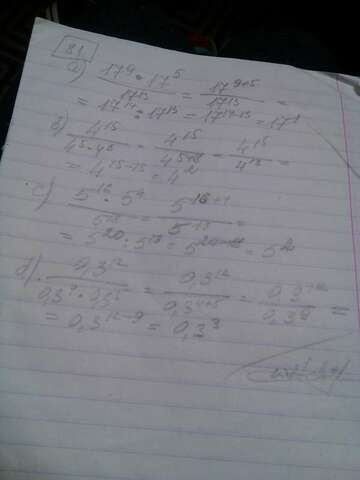 81
a) 17⁹ · 17⁵ / 17¹³ = 17⁹⁺⁵ / 17¹³ =
= 17¹⁴ : 17¹³ = 17¹⁴⁻¹³ = 17¹
b) 4¹⁵ / 4⁵ · 4⁸ = 4¹⁵ / 4⁵⁺⁸ = 4¹⁵ / 4¹³ =
= 4¹⁵⁻¹³ = 4²
c) 5¹⁶ · 5⁴ / 5¹⁸ = 5¹⁶⁺⁴ / 5¹⁸ =
= 5²⁰ : 5¹⁸ = 5²⁰⁻¹⁸ = 5²
d) 0,3¹² / 0,3⁴ · 0,3⁵ = 0,3¹² / 0,3⁴⁺⁵ = 0,3¹² / 0,3⁹ =
= 0,3¹²⁻⁹ = 0,3³